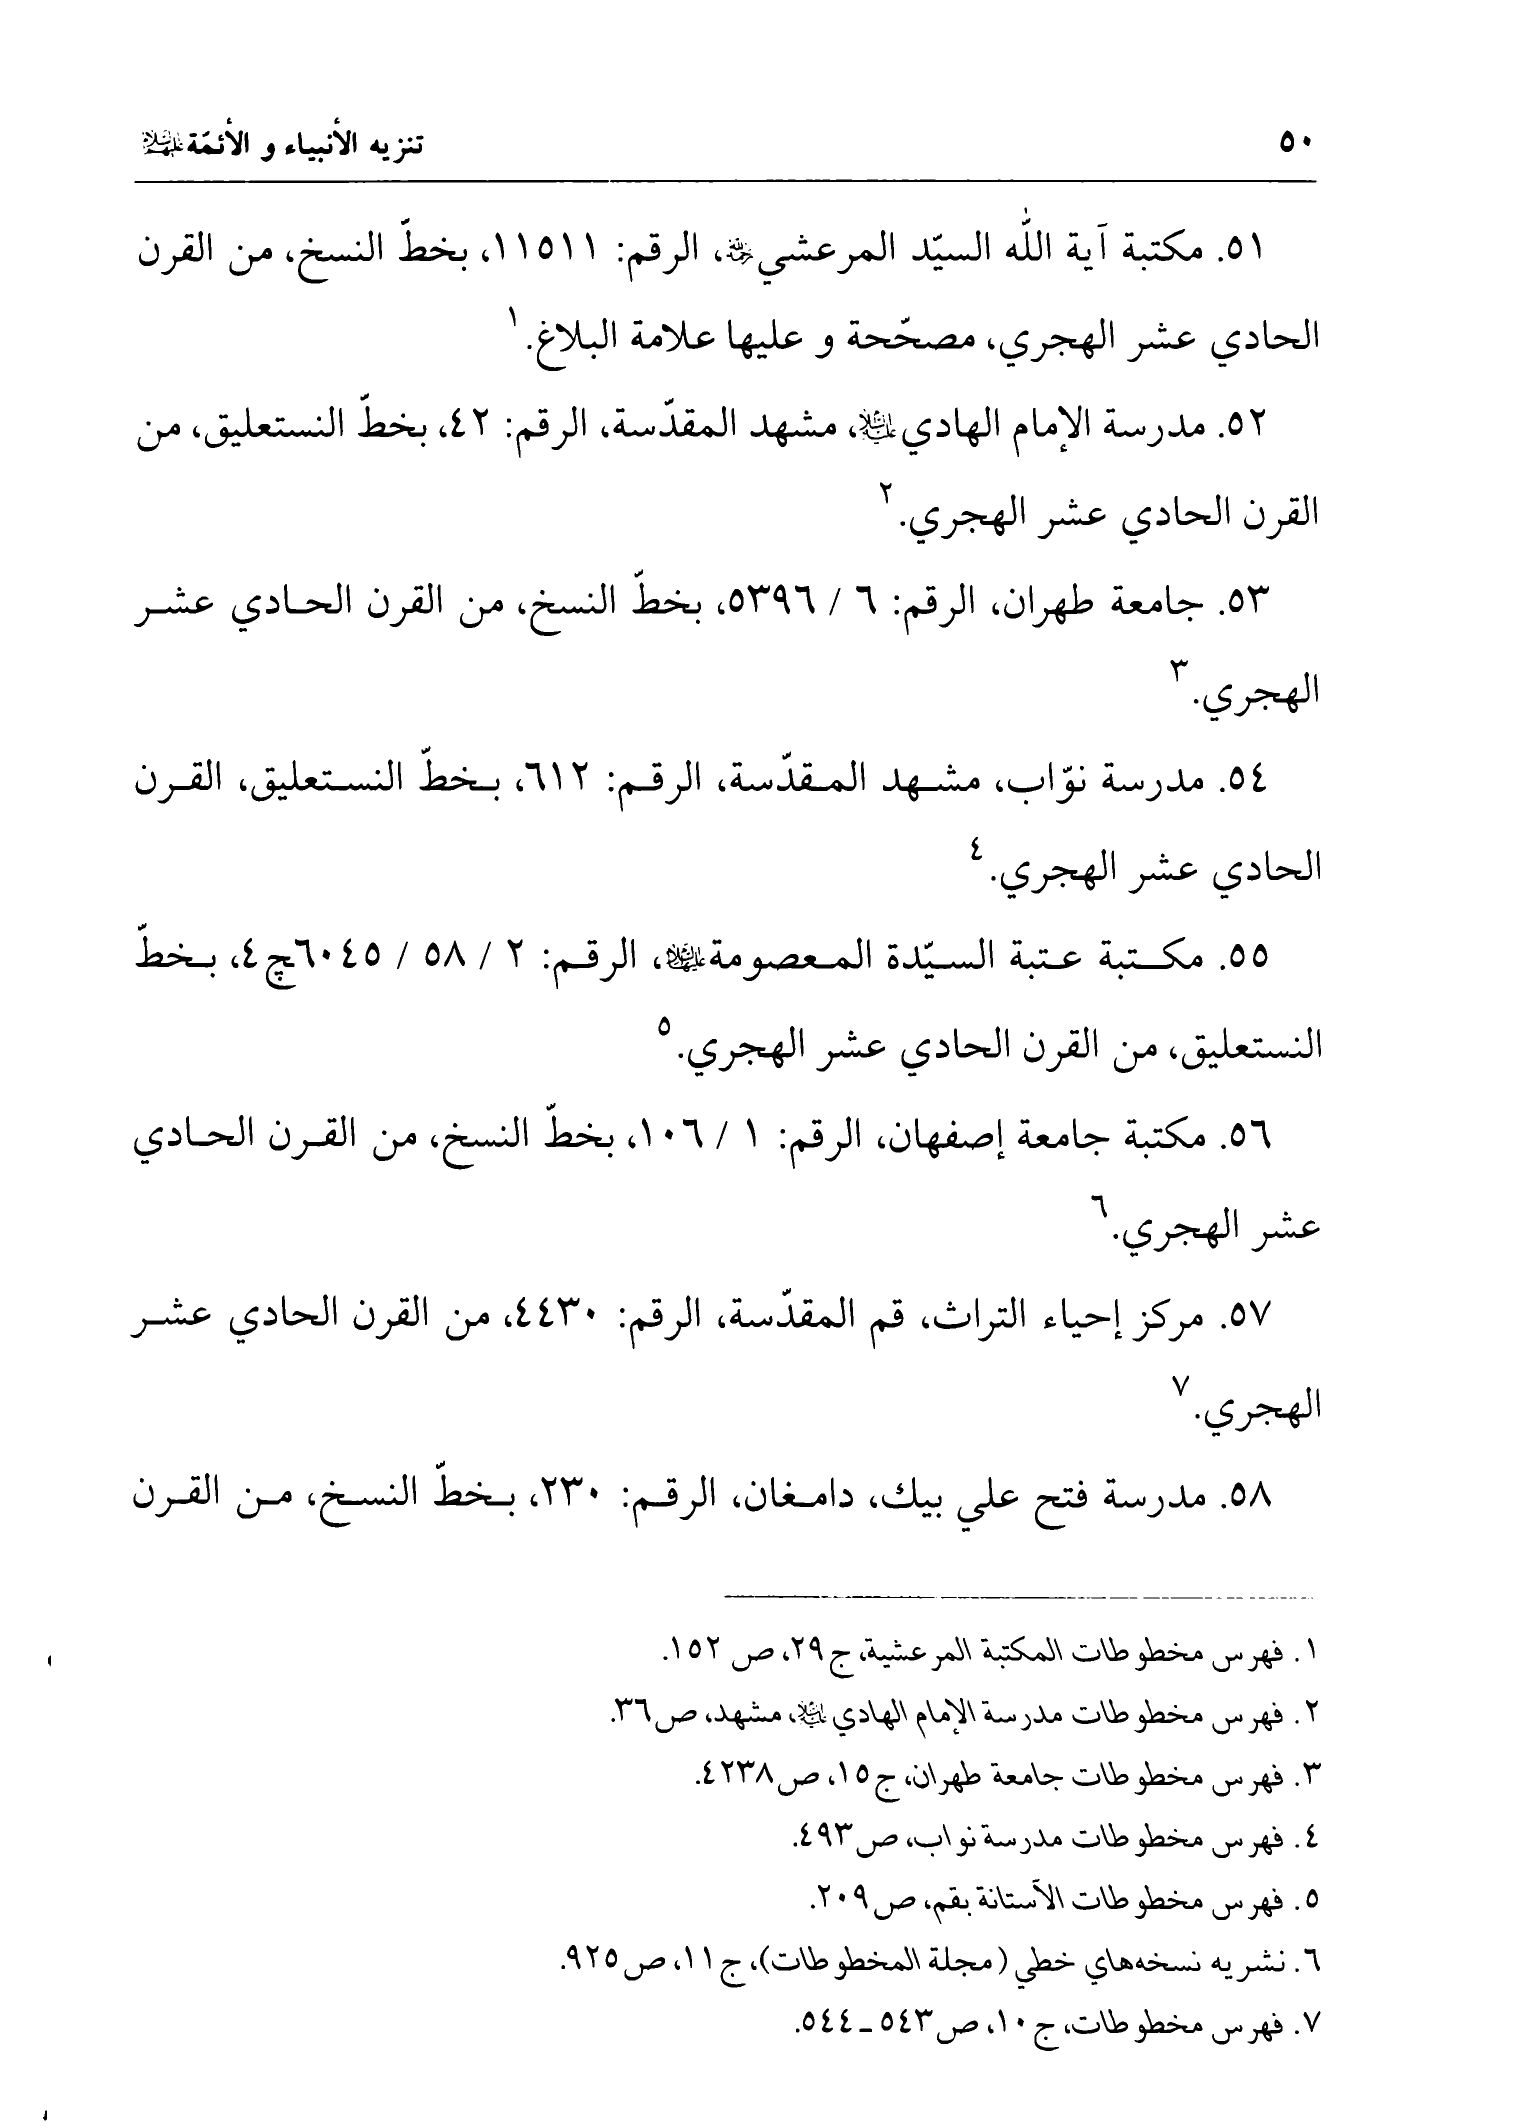 ٥٠ تنزيه الأنبياء و الأئمّة عليهم السلام
٥١. مكتبة آية الله السيّد المرعشي رحمه الله، الرقم: ١١٥١١، بخطّ النسخ، من القرن
الحادي عشر الهجري، مصحّحة و عليها علامة البلاغ.١
٥٢. مدرسة الإمام الهادي عليه السلام، مشهد المقدّسة، الرقم: ٤٢، بخطّ النستعليق، من
القرن الحادي عشر الهجري.٢
٥٣. جامعة طهران، الرقم: ٦ / ٥٣٩٦، بخطّ النسخ، من القرن الحادي عشر
الهجري.٣
٥٤. مدرسة نوّاب، مشهد المقدّسة، الرقم: ٦١٢، بخطّ النستعليق، القرن
الحادي عشر الهجري.٤
٥٥. مكتبة عتبة السيّدة المعصومة عليها السلام، الرقم: ٢ / ٥٨ / ٦٠٤٥چ٤، بخطّ
النستعليق، من القرن الحادي عشر الهجري.٥
٥٦. مكتبة جامعة إصفهان، الرقم: ١ / ١٠٦، بخطّ النسخ، من القرن الحادي
عشر الهجري.٦
٥٧. مركز إحياء التراث، قم المقدّسة، الرقم: ٤٤٣٠، من القرن الحادي عشر
الهجري.٧
٥٨. مدرسة فتح علي بيك، دامغان، الرقم: ٢٣٠، بخطّ النسخ، من القرن
١. فهرس مخطوطات المكتبة المرعشية، ج٢٩، ص ١٥٢.
٢. فهرس مخطوطات مدرسة الإمام الهادي عليه السلام، مشهد، ص٣٦.
٣. فهرس مخطوطات جامعة طهران، ج١٥، ص٤٢٣٨.
٤. فهرس مخطوطات مدرسة نواب، ص٤٩٣.
٥. فهرس مخطوطات الآستانة بقم، ص٢٠٩.
٦. نشريه نسخه‌هاي خطي (مجلة المخطوطات)، ج١١، ص٩٢٥.
٧. فهرس مخطوطات، ج١٠، ص٥٤٣ ـ ٥٤٤.